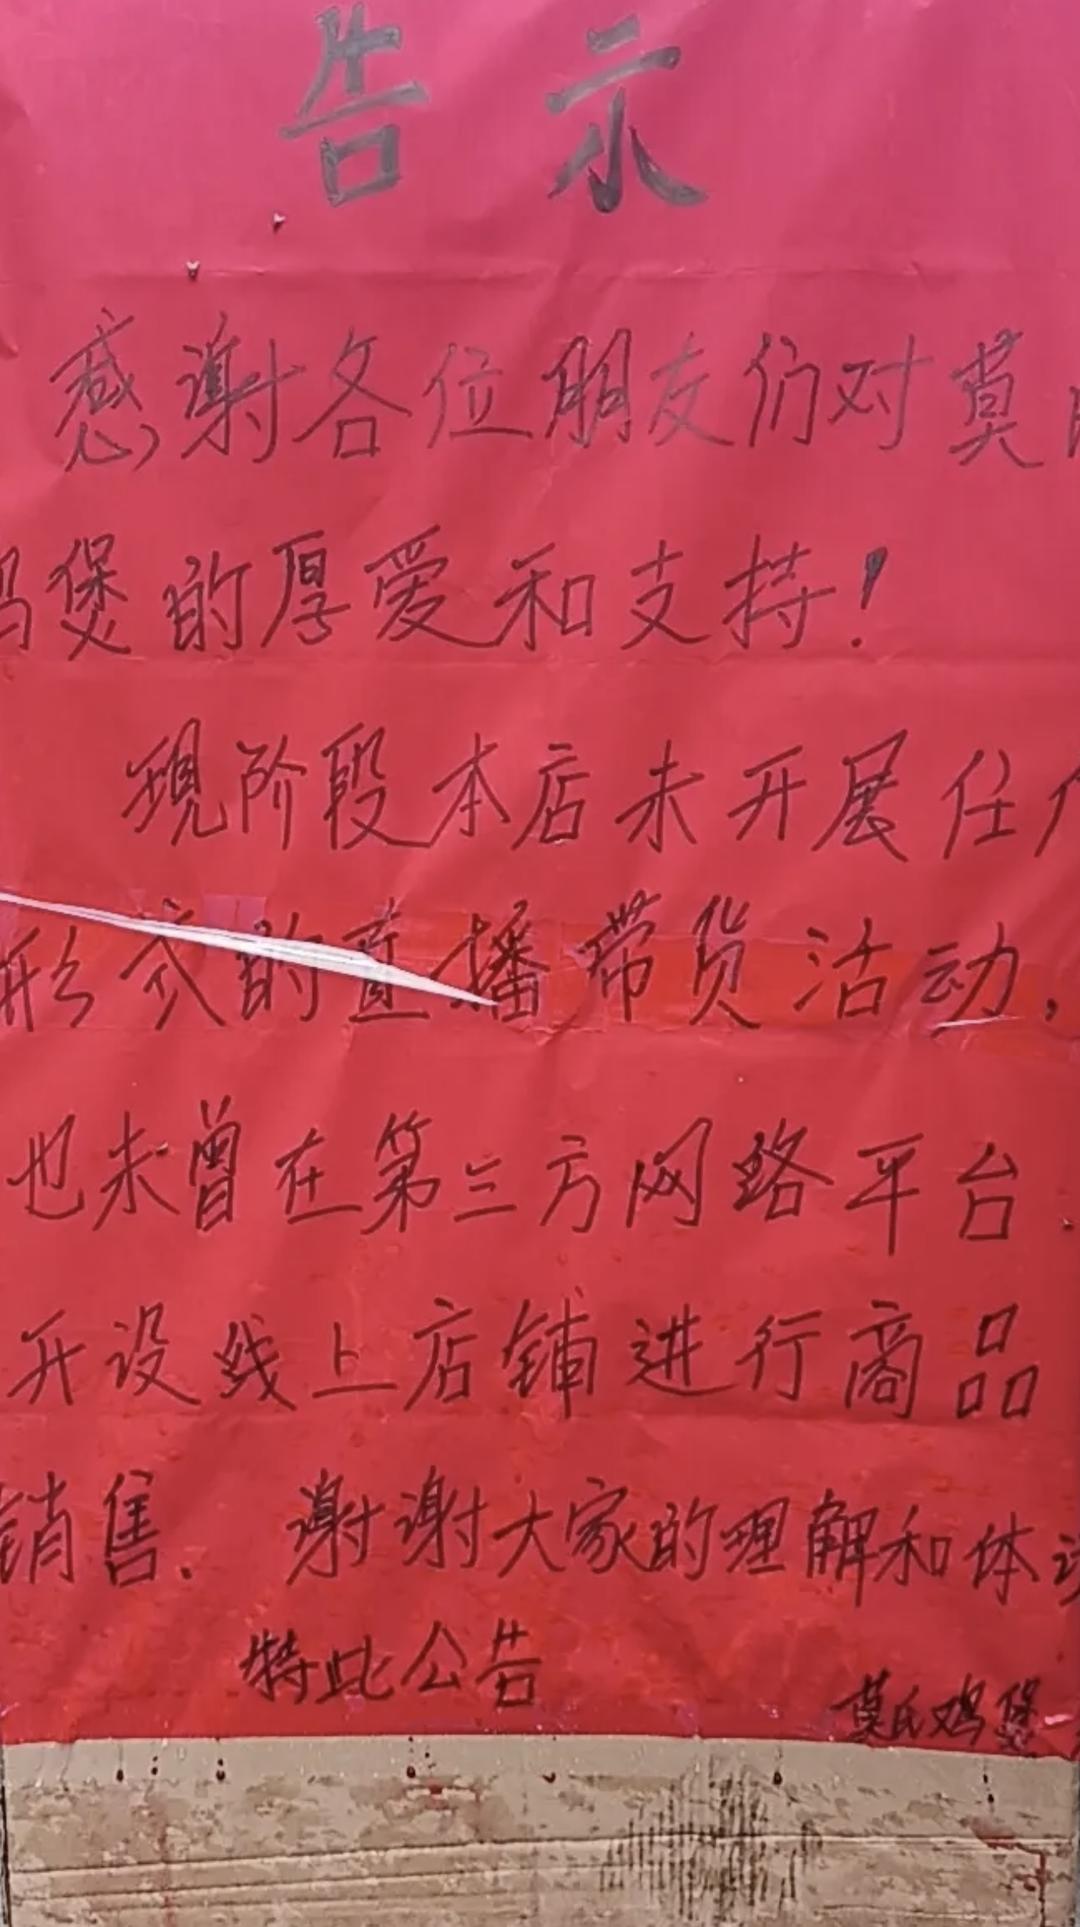 告示
感谢各位朋友们对莫
煲的厚爱和支持！
现阶段本店未开展任
形式的直播带货活动，
也未曾在第三方网络平台
开设线上店铺进行商品
销售. 谢谢大家的理解和体
特此公告
莫氏鸡煲